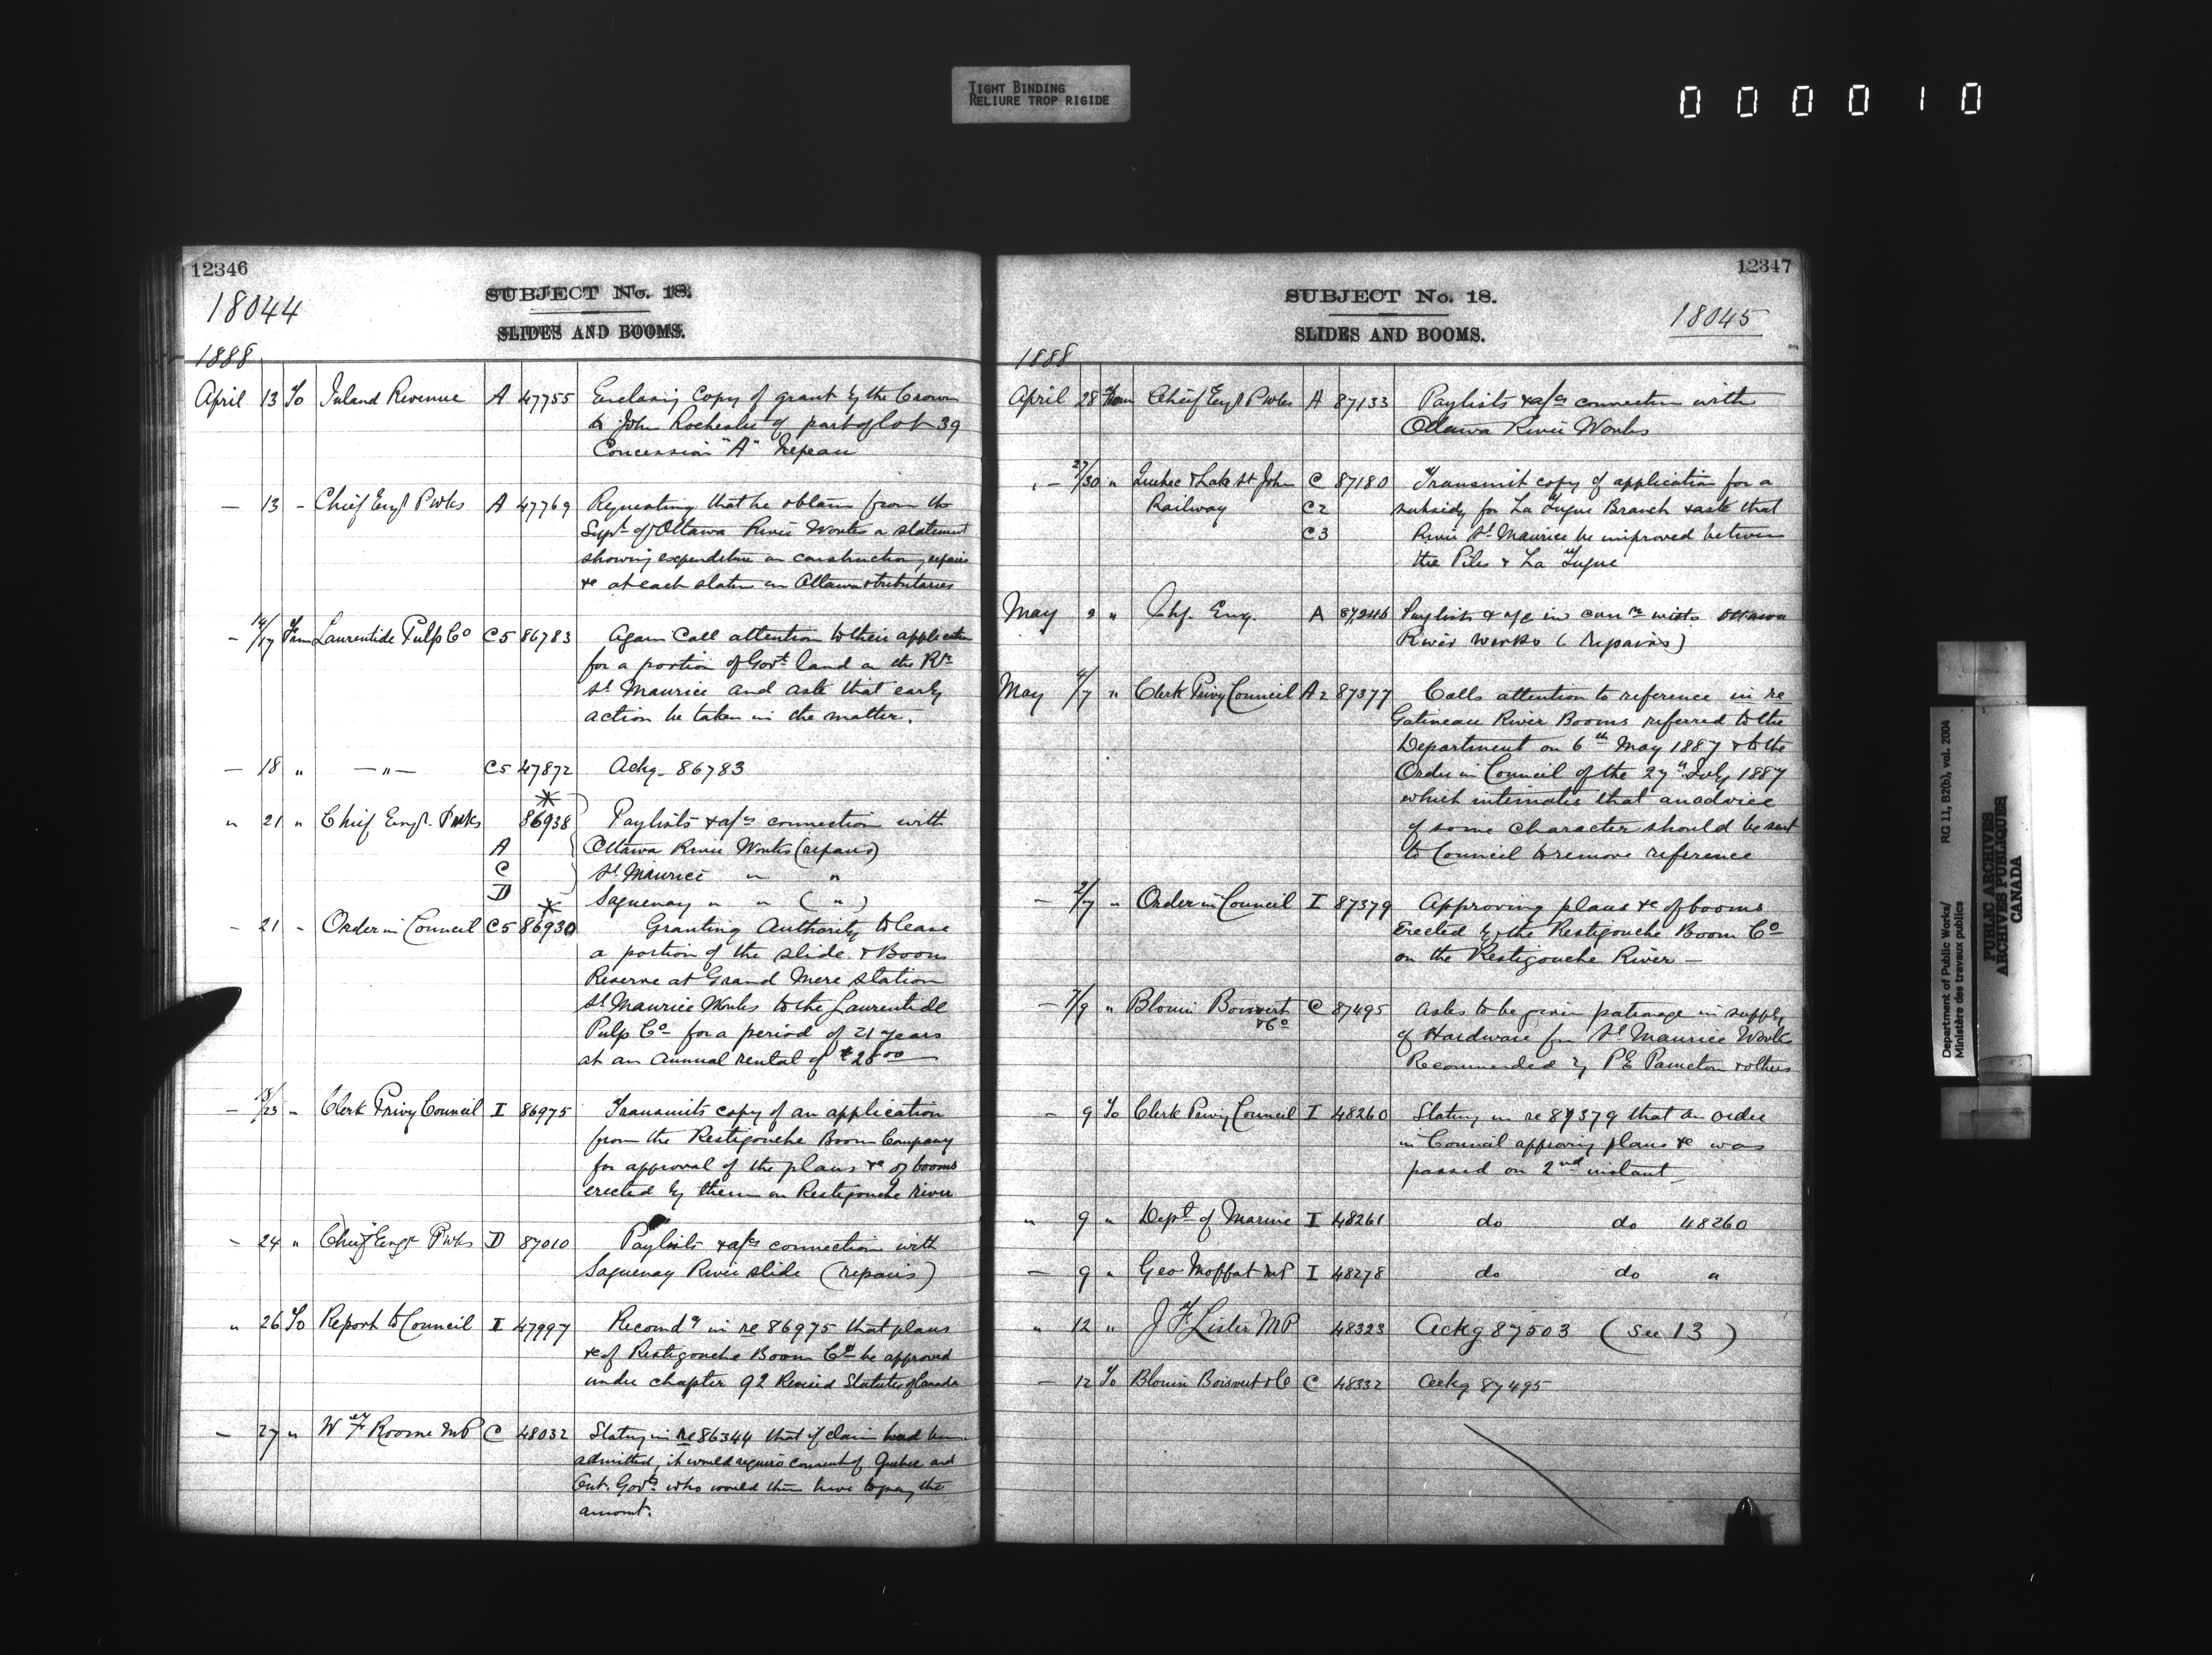 TIGHT BINDING
RELIURE TROP RIGIDE
000010
12346
18044
SUBJECT No. 18.
SLIDES AND BOOMS.
1888
April 13 To Inland Revenue A 47755 Enclosing Copy of grant by the Crown
to John Rochester of part of lot 39
Concession "A" Nepean
— 13 - Chief Engr P Wks A 47769 Requesting that he obtain from the
Supt of Ottawa River Works a statement
showing expenditure on construction, repairs
&c at each station on Ottawa & tributaries
- 14/17 From Laurentide Pulp Co C5 86783 Again Call attention to their application
for a portion of Govt land on the Rr
St Maurice and ask that early
action be taken in the matter.
— 18 " —"— C5 47872 Ackg. 86783
" 21 " Chief Engr. P Wks 86938 Paylists & a/cs connection with
A Ottawa River Works (repairs)
C St. Maurice " "
D Saguenay " " ( " )
- 21 - Order in Council C5 86930 Granting Authority to lease
a portion of the slide & Boom
Reserve at Grand Mere station
St Maurice Works to the Laurentide
Pulp Co for a period of 21 years
at an annual rental of
— - Clerk Privy Council I 86975 Transmits copy of an application
from the Restigouche Boom Company
for approval of the plans &c of booms
erected by them on Restigouche river
- 24 " Chief Engr P Wks D 87010 Paylists & a/cs connection with
Saguenay River slide (repairs)
" 26 To Report to Council I 47997 Recomdg in re 86975 that plans
&c of Restigouche Boom Co be approved
under chapter 92 Revised Statutes of Canada
- 27 " W F Roome MP C 48032 Stating in re 86344 that if claim had been
admitted, it would require consent of Quebec and
Ont. Govts who would then have to pay the
amount.
12347
SUBJECT No. 18.
18045
SLIDES AND BOOMS.
1888
April 28 From Chief Engr P Wks A 87133 Paylists & a/cs connection with
Ottawa River Works
- 27/30 " Quebec & Lake St John C 87180 Transmit copy of application for a
Railway C2 subsidy for La Tuque Branch & ask that
C3 River St Maurice be improved between
the Piles & La Tuque
May 2 " Chf. Eng. A 87246 Paylists & a/c in connn with Ottawa
River Works (repairs)
May 4/7 " Clerk Privy Council A2 87377 Calls attention to reference in re
Gatineau River Booms referred to the
Department on 6th May 1887 & to the
Order in Council of the 27th July 1887
which intimates that an advice
of some character should be sent
to Council to remove reference
- 2/7 " Order in Council I 87379 Approving plans &c of booms
Erected by the Restigouche Boom Co
on the Restigouche River —
- 7/9 " Blouin Boisvert C 87495 Asks to be given patronage in supply
& Co of Hardware for St Maurice Works
Recommended by P E & others
- 9 To Clerk Privy Council I 48260 Stating in re 87379 that an order
in Council approving plans &c was
passed on 2nd instant
" 9 " Dept of Marine I 48261 do do 48260
— 9 " Geo Moffat MP I 48278 do do "
" 12 " J F Lister MP 48323 Ackg 87503 (See 13)
— 12 To Blouin Boisvert & Co C 48332 Ackg 87495
Department of Public Works/
Ministère des travaux publics
RG 11, B2(b), vol. 2004
PUBLIC ARCHIVES
ARCHIVES PUBLIQUES
CANADA